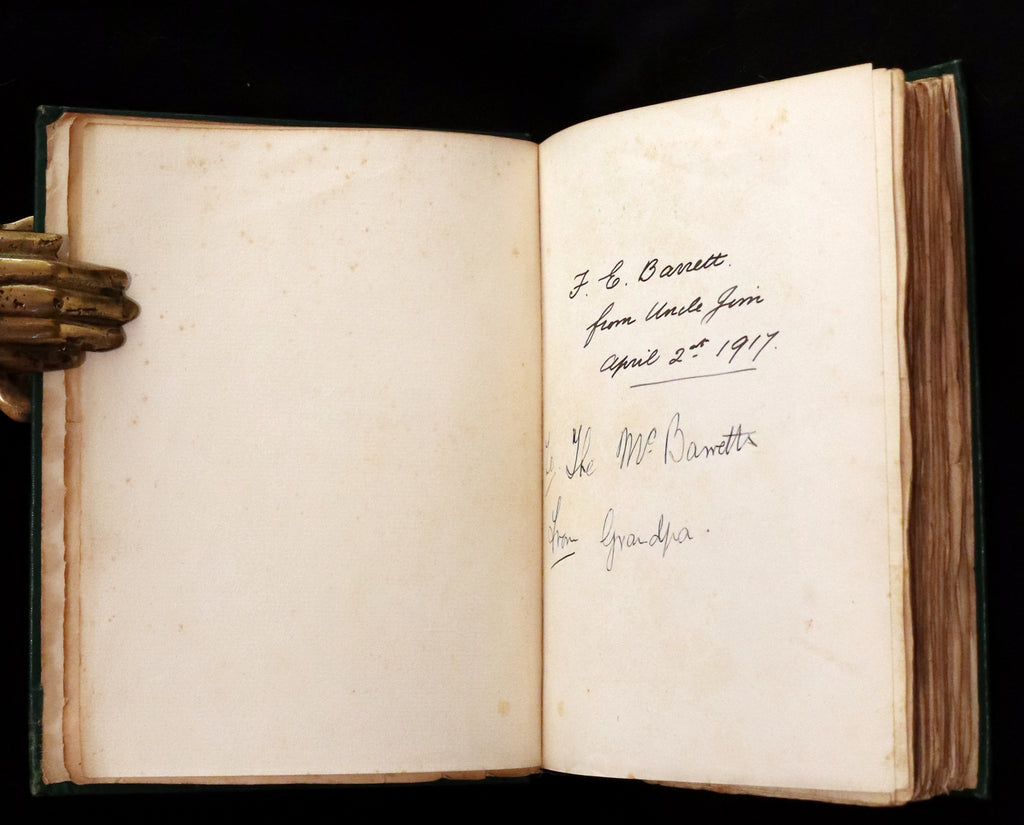 F. E. Barrett.
from Uncle Jim
April 2nd. 1917.
To. The Mc Barretts
From Grandpa.